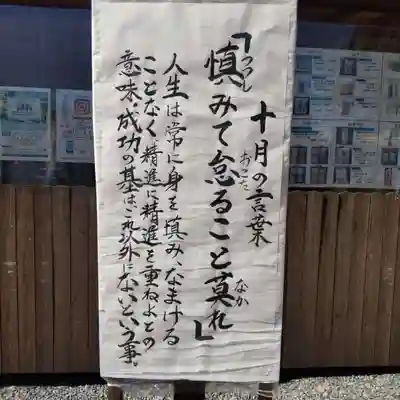 十月の言葉
「慎みて怠ること莫れ」
つつし
おこた
なか
人生は常に身を慎み、なまける
ことなく精進に精進を重ねよとの
意味。成功の基はこれ以外にないという事。